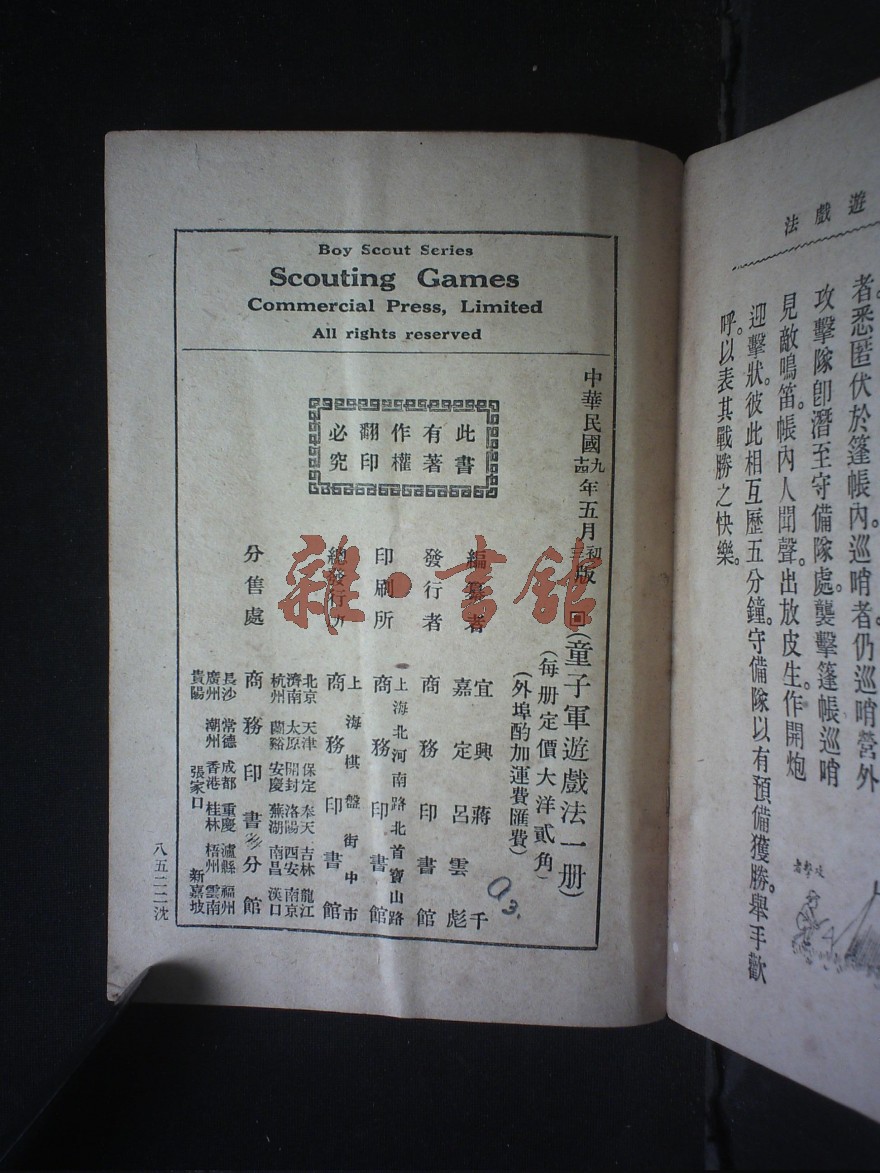 Boy Scout Series
Scouting Games
Commercial Press, Limited
All rights reserved
此書
有著
作權
翻印
必究
中華民國九年五月初版
十四三
回(童子軍遊戲法一册)
(每册定價大洋貳角)
(外埠酌加運費匯費)
編纂者 宜興蔣千
嘉定呂雲彪
發行者 商務印書館
印刷所 上海北河南路北首寶山路
商務印書館
總發行所 上海棋盤街中市
商務印書館
分售處
北京 天津 保定 奉天 吉林 龍江
濟南 太原 開封 洛陽 西安 南京
杭州 蘭谿 安慶 蕪湖 南昌 漢口
商務印書分館
長沙 常德 成都 重慶 瀘縣 福州
廣州 潮州 香港 桂林 梧州 雲南
貴陽 張家口 新嘉坡
八五二二沈
雜·書館
93.
遊戲法
者。悉匿伏於篷帳內。巡哨者。仍巡哨營外
攻擊隊卽潛至守備隊處。襲擊篷帳巡哨
見敵鳴笛。帳內人聞聲。出放皮生。作開炮
迎擊狀。彼此相互歷五分鐘。守備隊以有預備獲勝。舉手歡
呼。以表其戰勝之快樂。
攻擊者